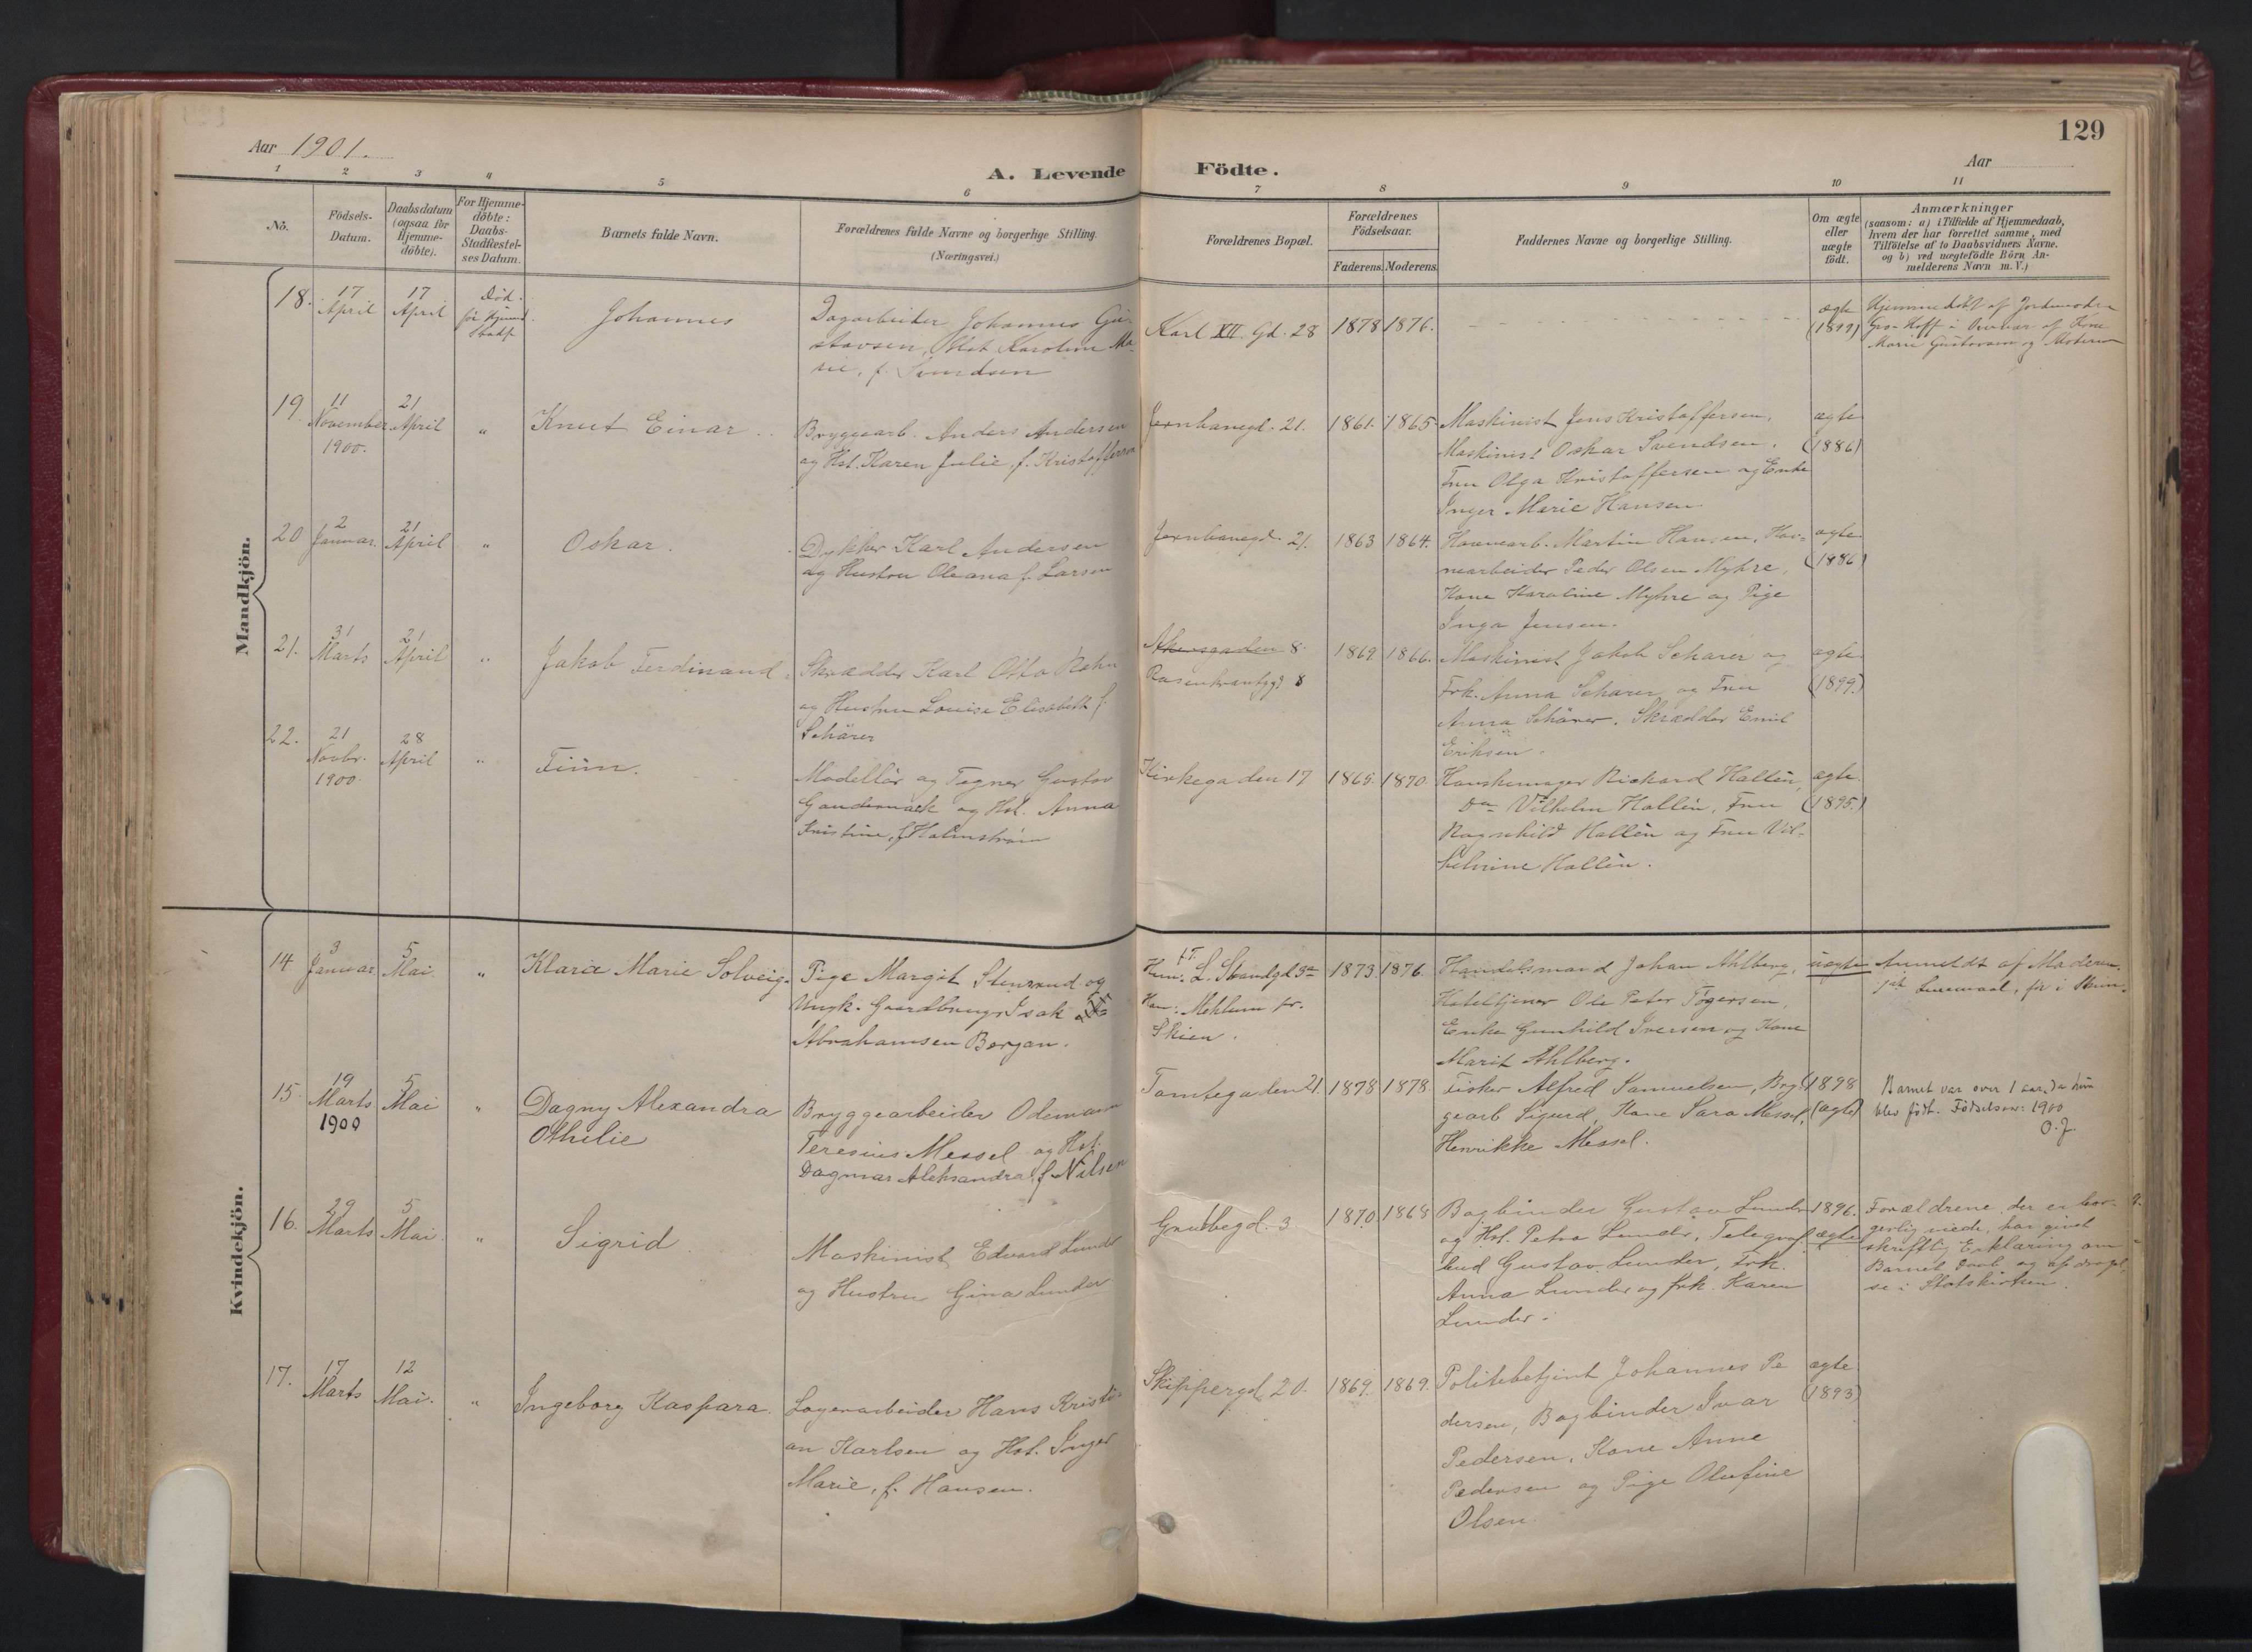 129
Aar 1901.
Aar
A. Levende Födte.
1 2 3 4 5 6 7 8 9 10 11
No.
Födsels-
Datum.
Daabsdatum
(ogsaa for
Hjemme-
döbte).
For Hjemme-
döbte:
Daabs-
Stadfæstel-
ses Datum.
Barnets fulde Navn.
Forældrenes fulde Navne og borgerlige Stilling.
(Næringsvei.)
Forældrenes Bopæl.
Forældrenes
Födselsaar.
Faderens. Moderens.
Faddernes Navne og borgerlige Stilling.
Om ægte
eller
uægte
födt.
Anmærkninger
(saasom: a) i Tilfælde af Hjemmedaab,
hvem der har forrettet samme, med
Tilföielse af to Daabsvidners Navne.
og b) ved uægtefödte Börn An-
melderens Navn m.V.)
Mandkjön.
18.
17
April
17
April
Död
för Hjemmed.
Stadf.
Johannes
Dagarbeider Johannes Gu-
stavsen, Hst. Karoline Ma-
rie, f. Svendsen
Karl XII Gd. 28
1878 1876.
ægte
(1899)
Hjemmedöbt af Jordmoder
Marie Gustavsen og
19.
11
November
1900.
21
April
"
Knut Einar
Bryggearb. Anders Andersen
og Hst. Karen Julie f. Kristoffersen
Jernbanegd. 21.
1861. 1865.
Maskinist Jens Kristoffersen,
Maskinist Oskar Svendsen,
Fru Olga Kristoffersen og Enke
Inger Marie Hansen
ægte
(1886)
20
2
Januar.
21
April
"
Oskar.
Dykker Karl Andersen
og Hustru Oleana f. Larsen
Jernbanegd. 21.
1863 1864.
Havnearb. Martin Hansen, Hav-
nearbeider Peder Olsen Myhre,
Kone Karoline Myhre og Pige
Inga Jensen.
ægte
(1886)
21.
31
Marts
21
April
"
Jakob Ferdinand
Skrædder Karl Otto Rahn
og Hustru Louise Elisabeth f.
Schärer
Akersgaden 8.
Rosenkrantzgd 8
1869. 1866.
Maskinist Jakob Schärer og
Frk. Anna Schärer og Fru
Anna Schärer. Skrædder Emil
Eriksen.
ægte
(1899.)
22.
21
Novbr.
1900.
28
April
"
Finn.
Modellör og Tegner Gustav
og Hst. Anna
Kristine, f. Holmström
Kirkegaden 17
1865. 1870.
Hanskemager Rickard Hallén,
Do Vilhelm Hallén, Fru
Ragnhild Hallén og Fru Vil-
helmine Hallén.
ægte.
(1895.)
Kvindekjön.
14
3
Januar
5
Mai
"
Klara Marie Solveig.
Pige Margit Stenrud og
Ungk. Gaardbruger Isak
Abrahamsen Borgan.
Hun: L. Strandgd 3
Han: Mehlum pr.
Skien.
1873 1876.
Handelsmand Johan Ahlberg,
Hoteltjener Ole Peter Tögersen,
Enke Gunhild Iversen og Kone
Marit Ahlberg.
uægte
Anmeldt af Moderen.
15.
19
Marts
1900
5
Mai
"
Dagny Alexandra
Othilie
Bryggearbeider Odemann
Teresius Messel og Hst.
Dagmar Aleksandra, f. Nilsen
Tomtegaden 21.
1878 1878.
Fisker Alfred Samuelsen, Bryg-
gearb Sigurd, Kone Sara Messel,
Henrikke Messel.
1898
(ægte)
Barnet var over 1 aar, da hun
blev födt. Födselsaar: 1900
O.J.
16.
29
Marts
5
Mai
"
Sigrid
Maskinist Edvard Lunder
og Hustru Gina Lunder
Grubbegd. 3
1870 1868
Bogbinder Gustav Lunder
og Hst. Petra Lunder, Telegraf
bud Gustav Lunder, Frk.
Anna Lunder og frk. Karen
Lunder.
1896.
ægte
Forældrene, der er bor-
gerlig viede, har givet
skriftlig Erklæring om
Barnets Daab og opdragel
se i Statskirken.
17.
17
Marts
12
Mai.
"
Ingeborg Kaspara.
Lagerarbeider Hans Kristi-
an Karlsen og Hst. Inger
Marie, f. Hansen.
Skippergd. 20.
1869. 1869.
Politibetjent Johannes Pe
dersen, Bogbinder Ivar
Pedersen, Kone Anne
Pedersen og Pige Olufine
Olsen.
ægte
(1893)